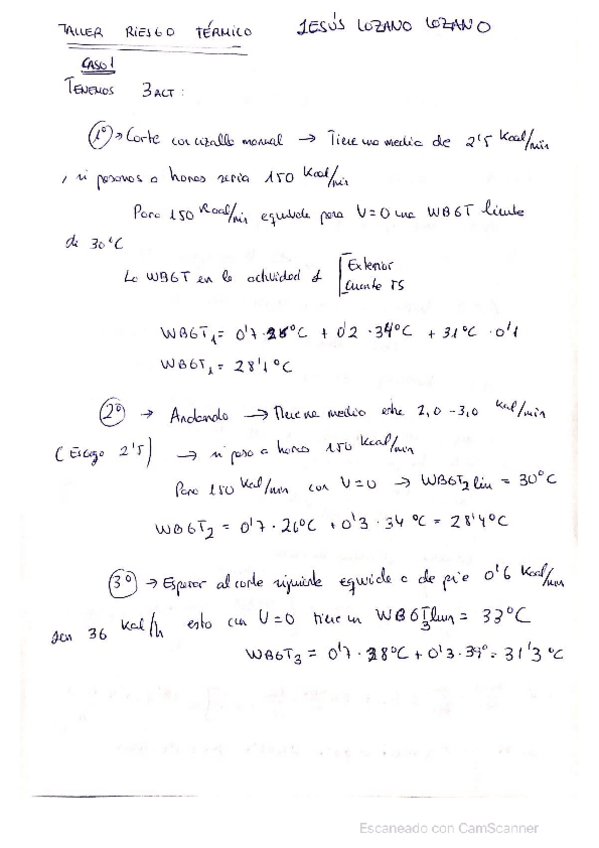 TALLER RIESGO TÉRMICO JESÚS LOZANO LOZANO
CASO 1
TENEMOS 3 ACT:
1º → Corte con cizalla manual → Tiene una media de 2'5 Kcal/min
, si pasamos a horas sería 150 Kcal/min
Para 150 Kcal/min equivale para V=0 una WBGT límite
de 30ºC
La WBGT en la actividad 1 Exterior
cuente TS
WBGT₁ = 0'7 · 26ºC + 0'2 · 34ºC + 31ºC · 0'1
WBGT₁ = 28'1ºC
2º → Andando → Tiene una media entre 2,0 - 3,0 Kcal/min
(Escogo 2'5) → si paso a horas 150 Kcal/min
Para 150 Kcal/min con V=0 → WBGT₂ lim = 30ºC
WBGT₂ = 0'7 · 26ºC + 0'3 · 34ºC = 28'4ºC
3º → Esperar al corte siguiente equivale a de pie 0'6 Kcal/min
son 36 Kcal/h esto con V=0 tiene un WBGT₃lim = 33ºC
WBGT₃ = 0'7 · 28ºC + 0'3 · 39º = 31'3ºC
Escaneado con CamScanner